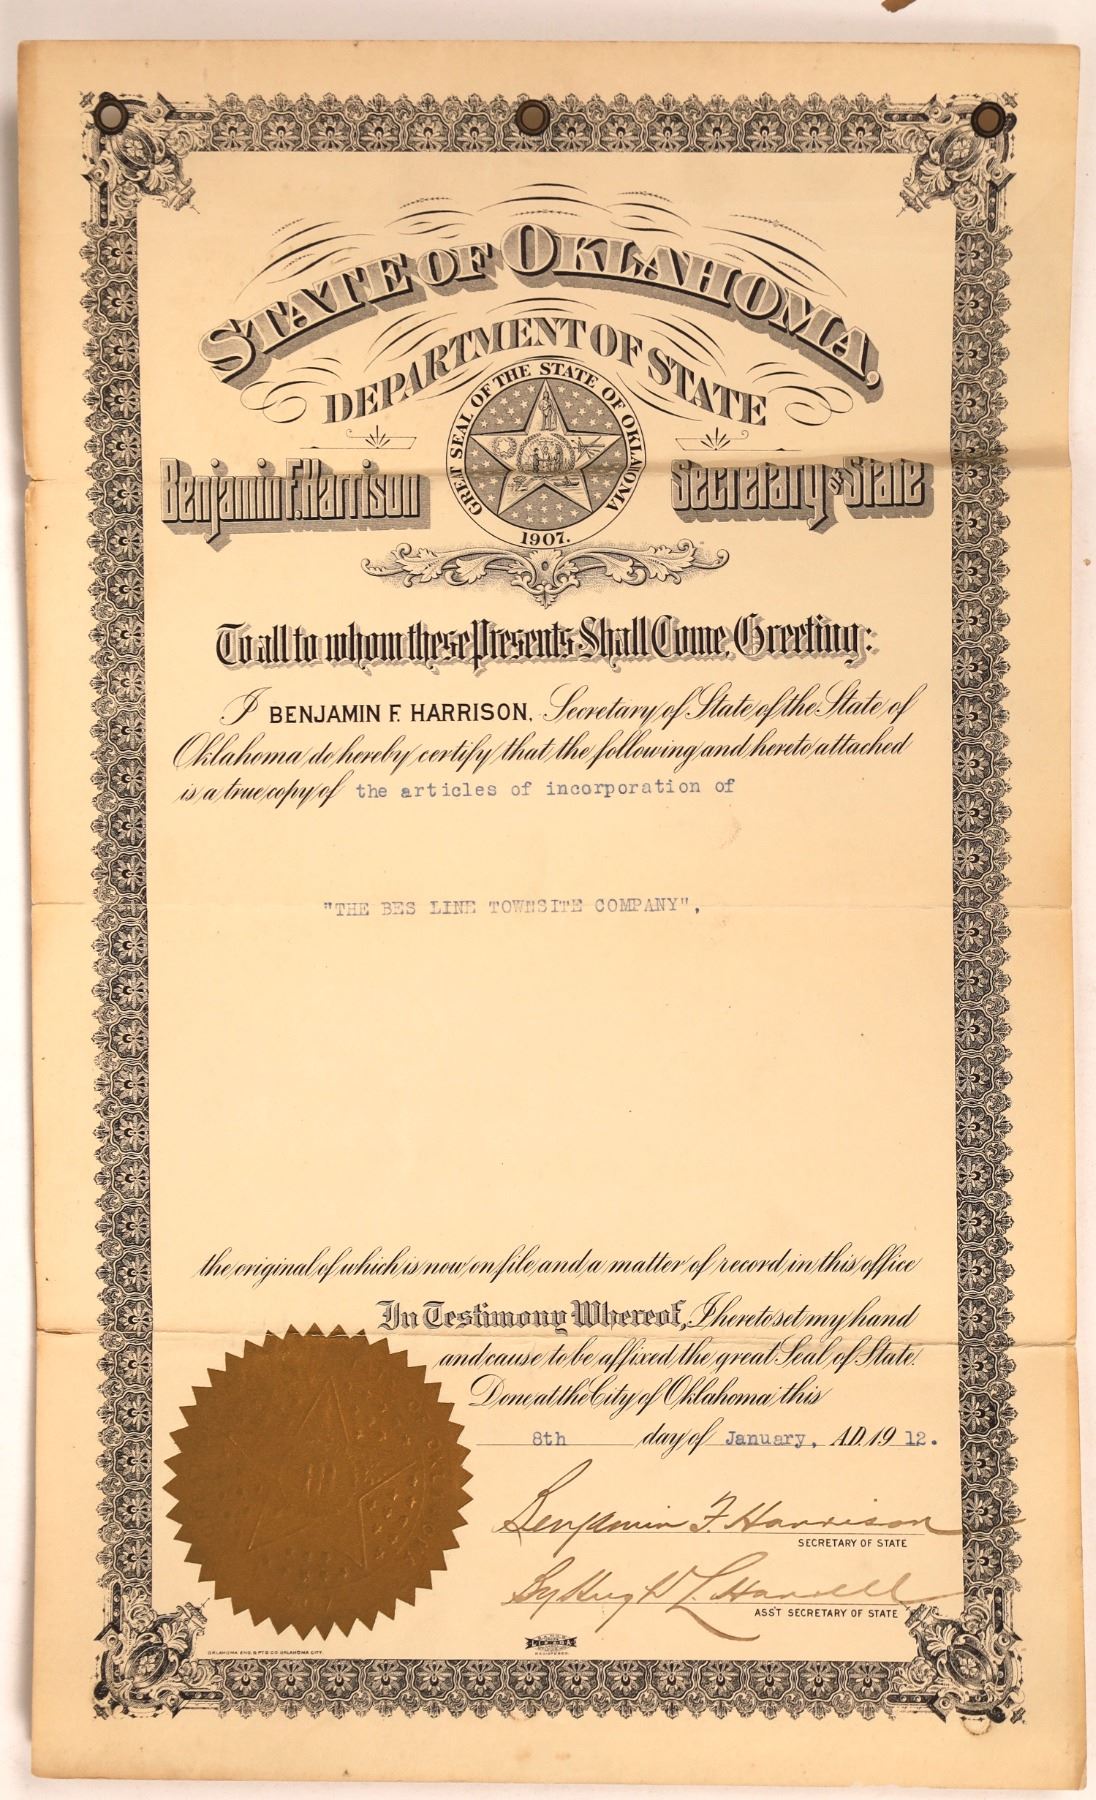 STATE OF OKLAHOMA,
DEPARTMENT OF STATE
GREAT SEAL OF THE STATE OF OKLAHOMA
1907.
Benjamin F. Harrison
Secretary of State
To all to whom these Presents Shall Come, Greeting:
I BENJAMIN F. HARRISON, Secretary of State of the State of
Oklahoma do hereby certify that the following and hereto attached
is a true copy of the articles of incorporation of
"THE BES LINE TOWNSITE COMPANY",
the original of which is now on file and a matter of record in this office
In Testimony Whereof, I hereto set my hand
and cause to be affixed the great Seal of State.
Done at the City of Oklahoma this
8th day of January, A.D. 19 12.
Benjamin F. Harrison
SECRETARY OF STATE
By Hugh L. Harrell
ASS'T SECRETARY OF STATE
OKLAHOMA ENG. & PTG CO. OKLAHOMA CITY.
REGISTERED